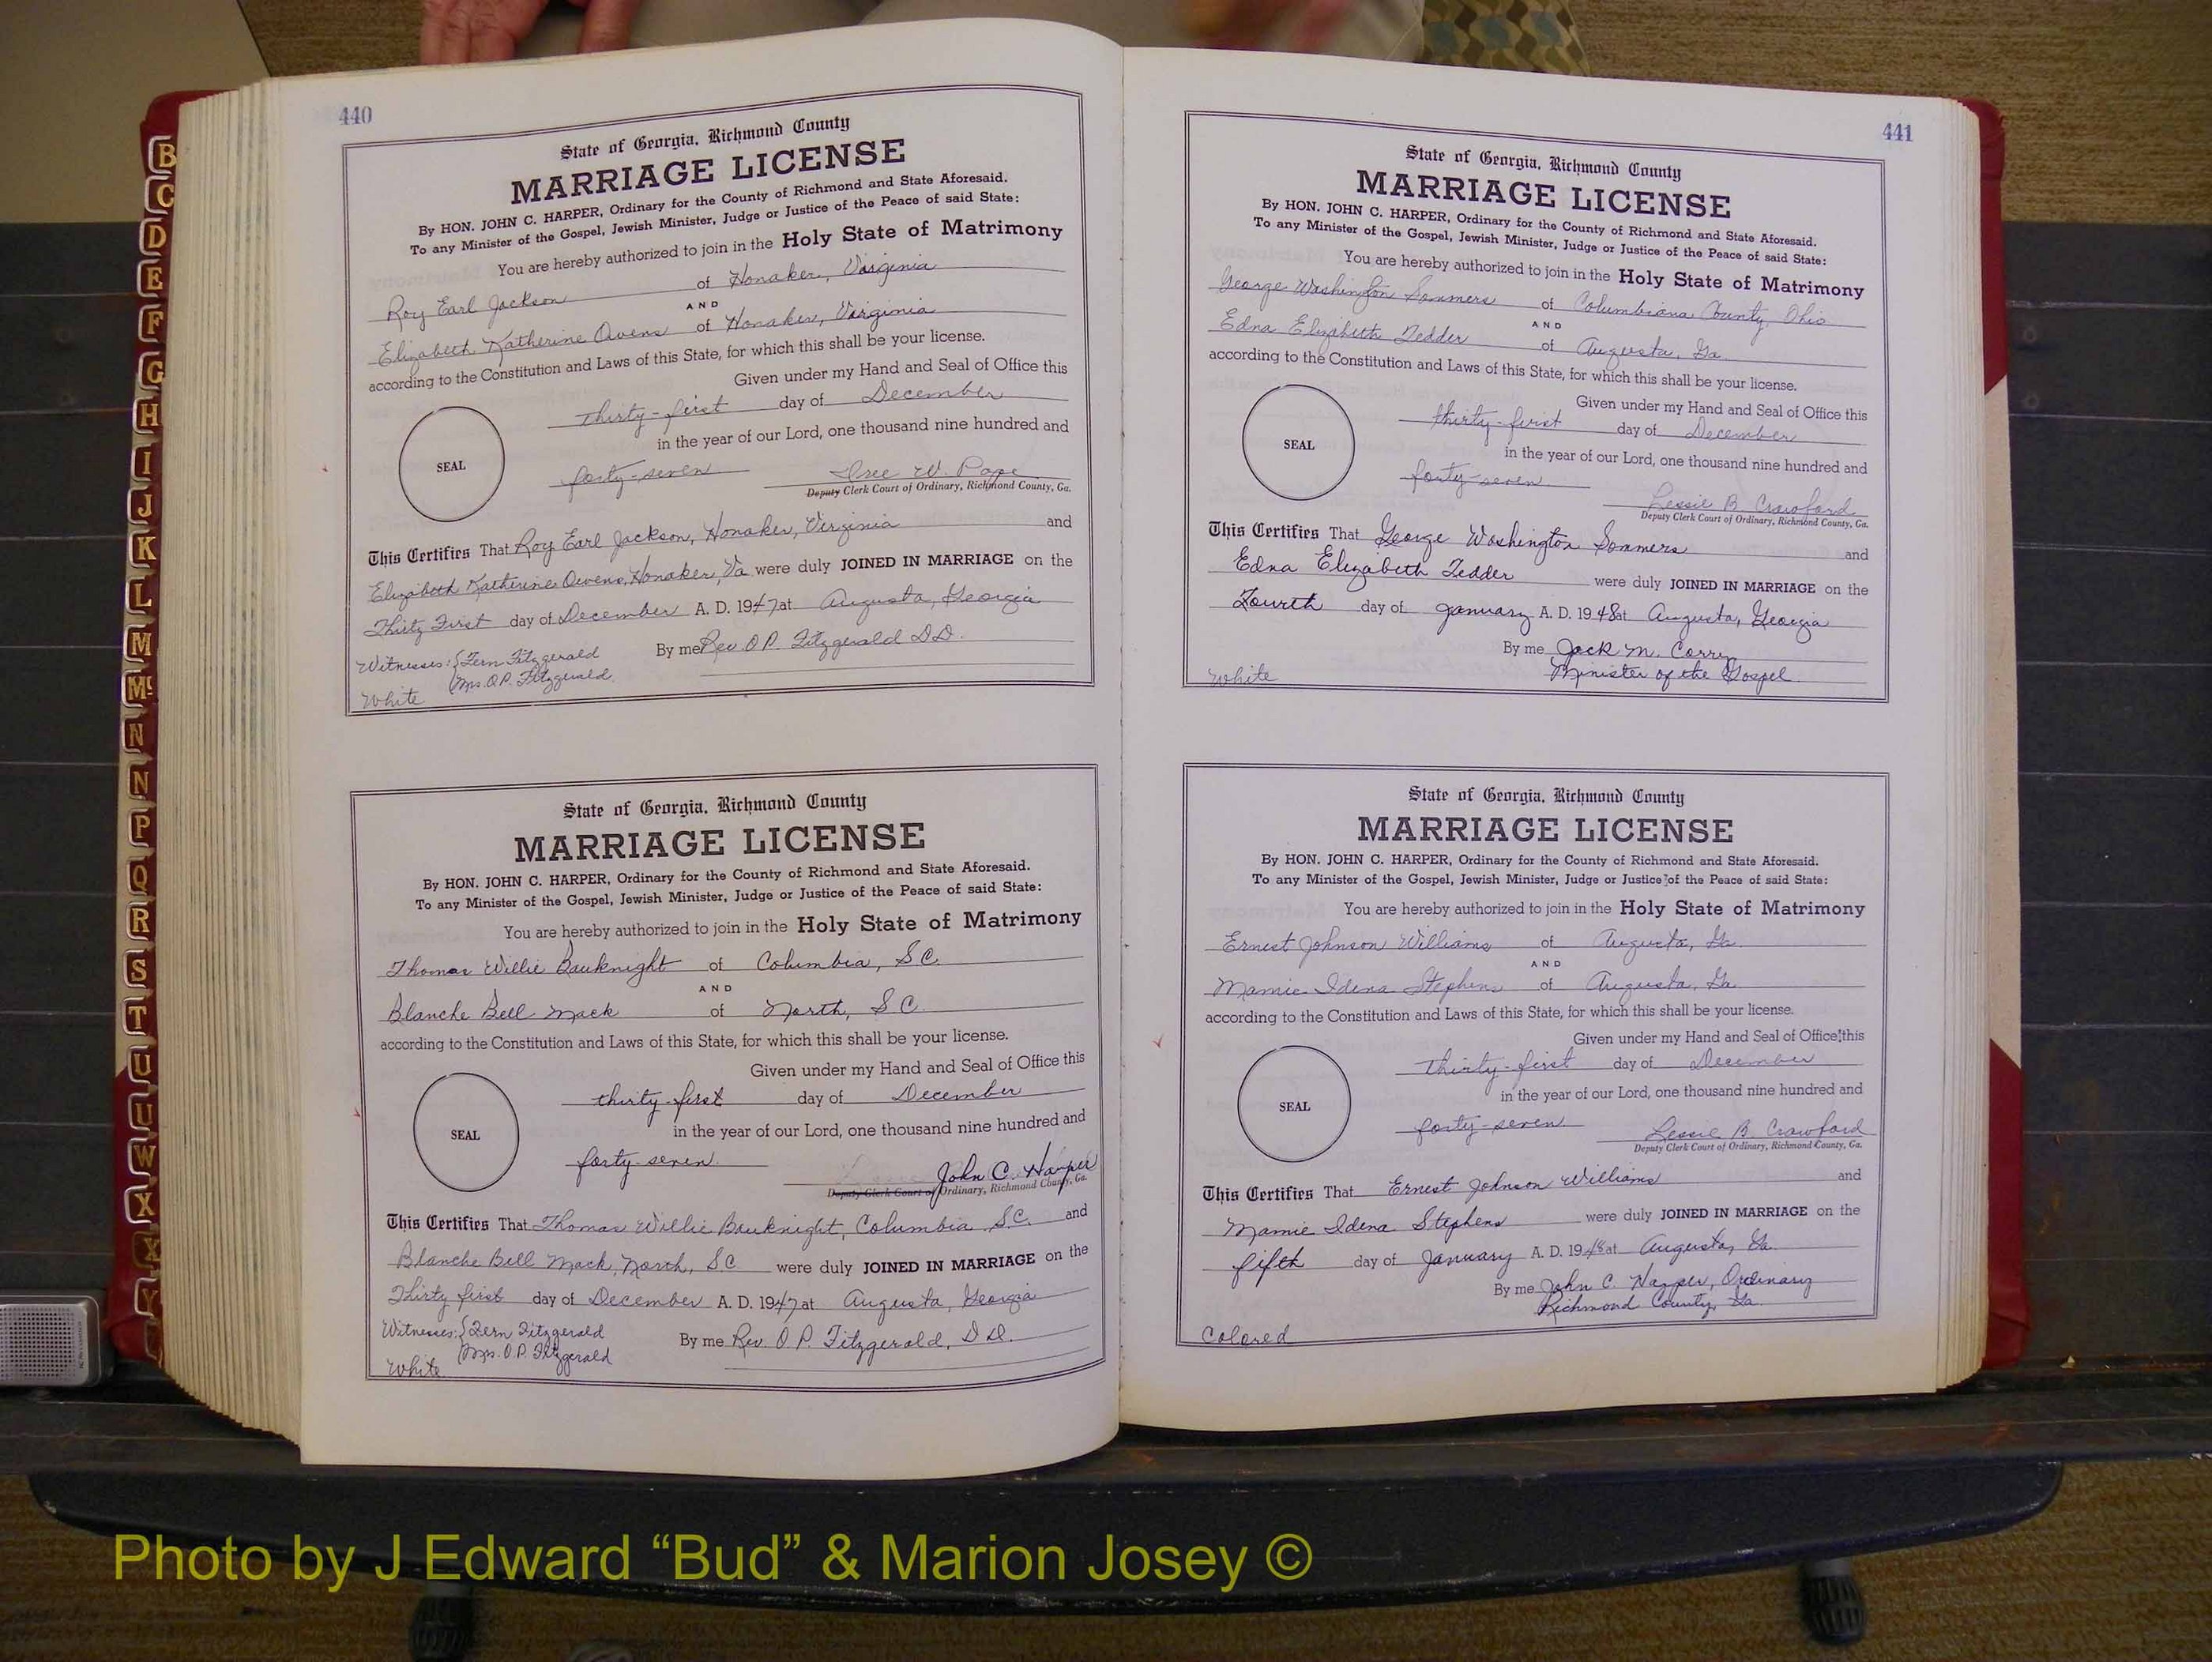 440
State of Georgia, Richmond County
MARRIAGE LICENSE
By HON. JOHN C. HARPER, Ordinary for the County of Richmond and State Aforesaid.
To any Minister of the Gospel, Jewish Minister, Judge or Justice of the Peace of said State:
You are hereby authorized to join in the Holy State of Matrimony
Roy Earl Jackson of Honaker, Virginia
AND
Elizabeth Katherine Owens of Honaker, Virginia
according to the Constitution and Laws of this State, for which this shall be your license.
Given under my Hand and Seal of Office this
Thirty-first day of December
in the year of our Lord, one thousand nine hundred and
SEAL
forty-seven W. Pope
Deputy Clerk Court of Ordinary, Richmond County, Ga.
This Certifies That Roy Earl Jackson, Honaker, Virginia and
Elizabeth Katherine Owens, Honaker, Va were duly JOINED IN MARRIAGE on the
Thirty First day of December A. D. 1947 at Augusta, Georgia
By me Rev. O.P. Fitzgerald D.D.
Witnesses: { Fern Fitzgerald
( Mrs. O.P. Fitzgerald
White
State of Georgia, Richmond County
MARRIAGE LICENSE
By HON. JOHN C. HARPER, Ordinary for the County of Richmond and State Aforesaid.
To any Minister of the Gospel, Jewish Minister, Judge or Justice of the Peace of said State:
You are hereby authorized to join in the Holy State of Matrimony
Thomas Willie Bauknight of Columbia, S.C.
AND
Blanche Bell Mack of North, S.C.
according to the Constitution and Laws of this State, for which this shall be your license.
Given under my Hand and Seal of Office this
thirty-first day of December
in the year of our Lord, one thousand nine hundred and
SEAL
forty-seven. John C. Harper
Deputy Clerk Court of Ordinary, Richmond County, Ga.
This Certifies That Thomas Willie Bauknight, Columbia S.C. and
Blanche Bell Mack, North, S.C were duly JOINED IN MARRIAGE on the
Thirty first day of December A. D. 1947 at Augusta, Georgia
Witnesses: { Fern Fitzgerald
( Mrs. O.P. Fitzgerald
By me Rev. O.P. Fitzgerald, D.D.
White
441
State of Georgia, Richmond County
MARRIAGE LICENSE
By HON. JOHN C. HARPER, Ordinary for the County of Richmond and State Aforesaid.
To any Minister of the Gospel, Jewish Minister, Judge or Justice of the Peace of said State:
You are hereby authorized to join in the Holy State of Matrimony
George Washington Sommers of Columbiana County, Ohio
AND
Edna Elizabeth Tedder of Augusta, Ga.
according to the Constitution and Laws of this State, for which this shall be your license.
Given under my Hand and Seal of Office this
thirty-first day of December
in the year of our Lord, one thousand nine hundred and
SEAL
forty-seven
Lessie B. Crawford
Deputy Clerk Court of Ordinary, Richmond County, Ga.
This Certifies That George Washington Sommers and
Edna Elizabeth Tedder were duly JOINED IN MARRIAGE on the
Fourth day of January A. D. 1948 at Augusta, Georgia
By me Jack M.
Minister of the Gospel.
White
State of Georgia, Richmond County
MARRIAGE LICENSE
By HON. JOHN C. HARPER, Ordinary for the County of Richmond and State Aforesaid.
To any Minister of the Gospel, Jewish Minister, Judge or Justice of the Peace of said State:
You are hereby authorized to join in the Holy State of Matrimony
Ernest Johnson Williams of Augusta, Ga.
AND
Mamie Idena Stephens of Augusta, Ga.
according to the Constitution and Laws of this State, for which this shall be your license.
Given under my Hand and Seal of Office this
Thirty-first day of December
in the year of our Lord, one thousand nine hundred and
SEAL
forty-seven
Lessie B. Crawford
Deputy Clerk Court of Ordinary, Richmond County, Ga.
This Certifies That Ernest Johnson Williams and
Mamie Idena Stephens were duly JOINED IN MARRIAGE on the
fifth day of January A. D. 1948 at Augusta, Ga.
By me John C. Harper, Ordinary
Richmond County, Ga.
Colored
B
C
D
E
F
G
H
I
J
K
L
M
Mc
N
N
P
Q
R
S
T
U
U
W
X
X
Y
Photo by J Edward “Bud” & Marion Josey ©